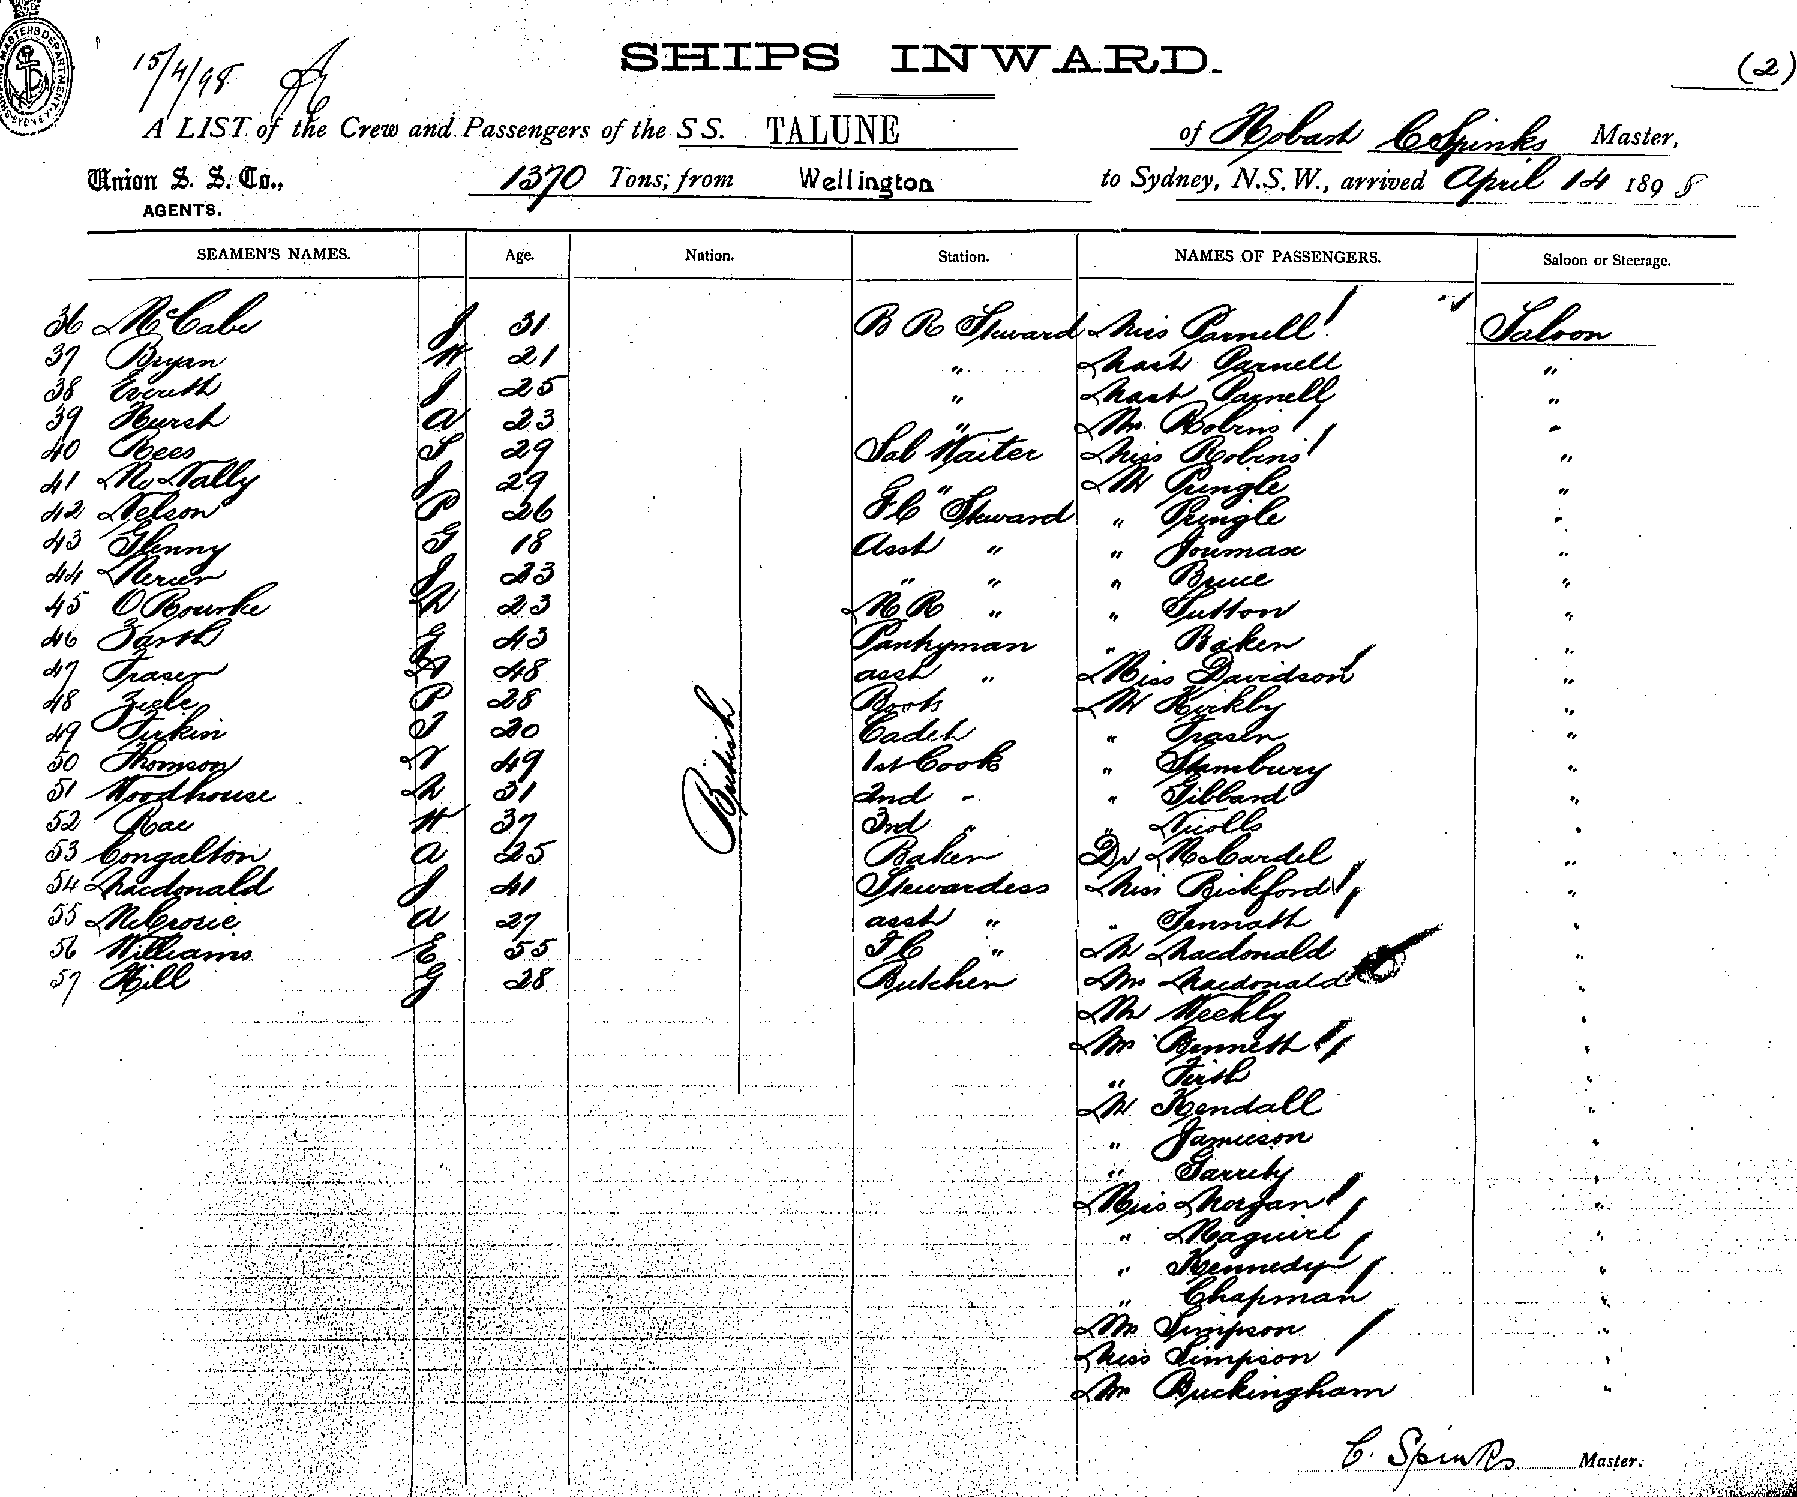 15/4/98
SHIPS INWARD.
(2)
A LIST of the Crew and Passengers of the S.S. TALUNE of Hobart C Spinks Master,
Union S. S. Co., 1370 Tons; from Wellington to Sydney, N.S.W., arrived April 14 1898
AGENTS.
SEAMEN'S NAMES. Age. Nation. Station. NAMES OF PASSENGERS. Saloon or Steerage.
36 McCabe J 31 B R Steward Miss Parnell Saloon
37 Bryan W 21 " Mast Parnell "
38 Everett J 25 " Mast Parnell "
39 Hurst A 23 " Mr Robins "
40 Rees S 29 Sal Waiter Miss Robins "
41 McNally J 29 " Mr Pringle "
42 Nelson P 26 F.C Steward " Pringle "
43 Glenny G 18 Asst " " "
44 J 23 " " " Bruce "
45 O'Rourke 23 " " Sutton "
46 G 43 Pantryman " Baker "
47 Fraser 48 asst " Miss Davidson "
48 P 28 Boots Mr Kirkby "
49 Firkin T 20 Cadet " Fraser "
50 Thomson 49 1st Cook " "
51 Woodhouse 31 2nd " " Gibbard "
52 Rae W 37 3rd " " Nicolls "
53 Congalton A 25 Baker Dr McCardel "
54 Macdonald J 41 Stewardess Miss Bickford "
55 A 27 asst " " "
56 Williams E 55 F.C " Mr Macdonald "
57 Hill G 28 Butcher Mrs Macdonald "
British
Mr Weekly "
Mrs Bennett "
" Firth "
Mr Kendall "
" Jamieson "
" Garrity "
Miss Morgan "
" Maguire "
" Kennedy "
" Chapman "
Mrs Simpson "
Miss Simpson "
Mr Buckingham "
C. Spinks Master.